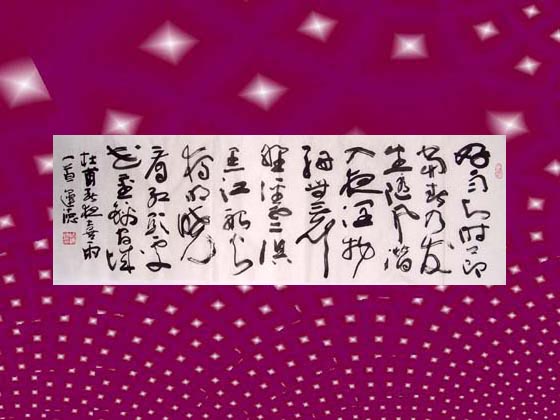 好雨知时节
當春乃发
生随风潜
入夜润物
细無声
野径云俱
黑江船火
独明晓
看红湿处
花重锦官城
杜甫春夜喜雨
一首